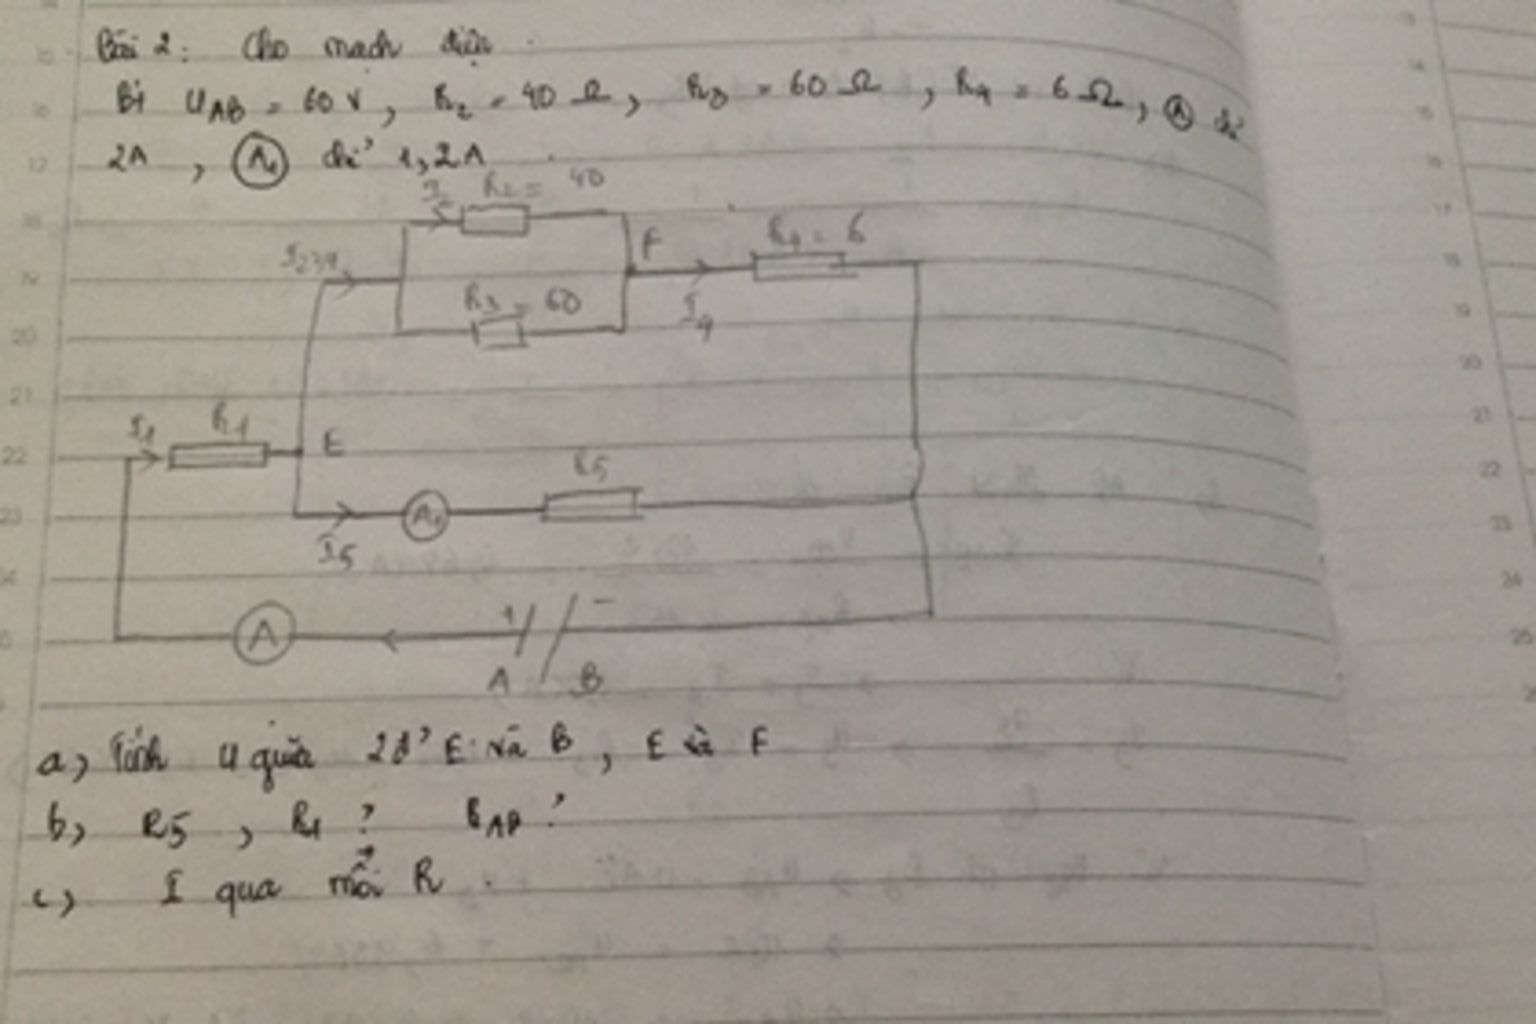 Bài 2: Cho mạch điện.
Bt U_AB = 60 V, R2 = 40 Ω, R3 = 60 Ω, R4 = 6 Ω, (A) chỉ
2A, (A1) chỉ 1,2A.
R2 = 40
I234
F
R4 = 6
R3 = 60
I4
I1
R1
E
R5
A1
I5
A
+
-
A
B
a) Tính U giữa 2đ' E và B, E và F
b) R5, R1? R_AB?
c) I qua mỗi R.